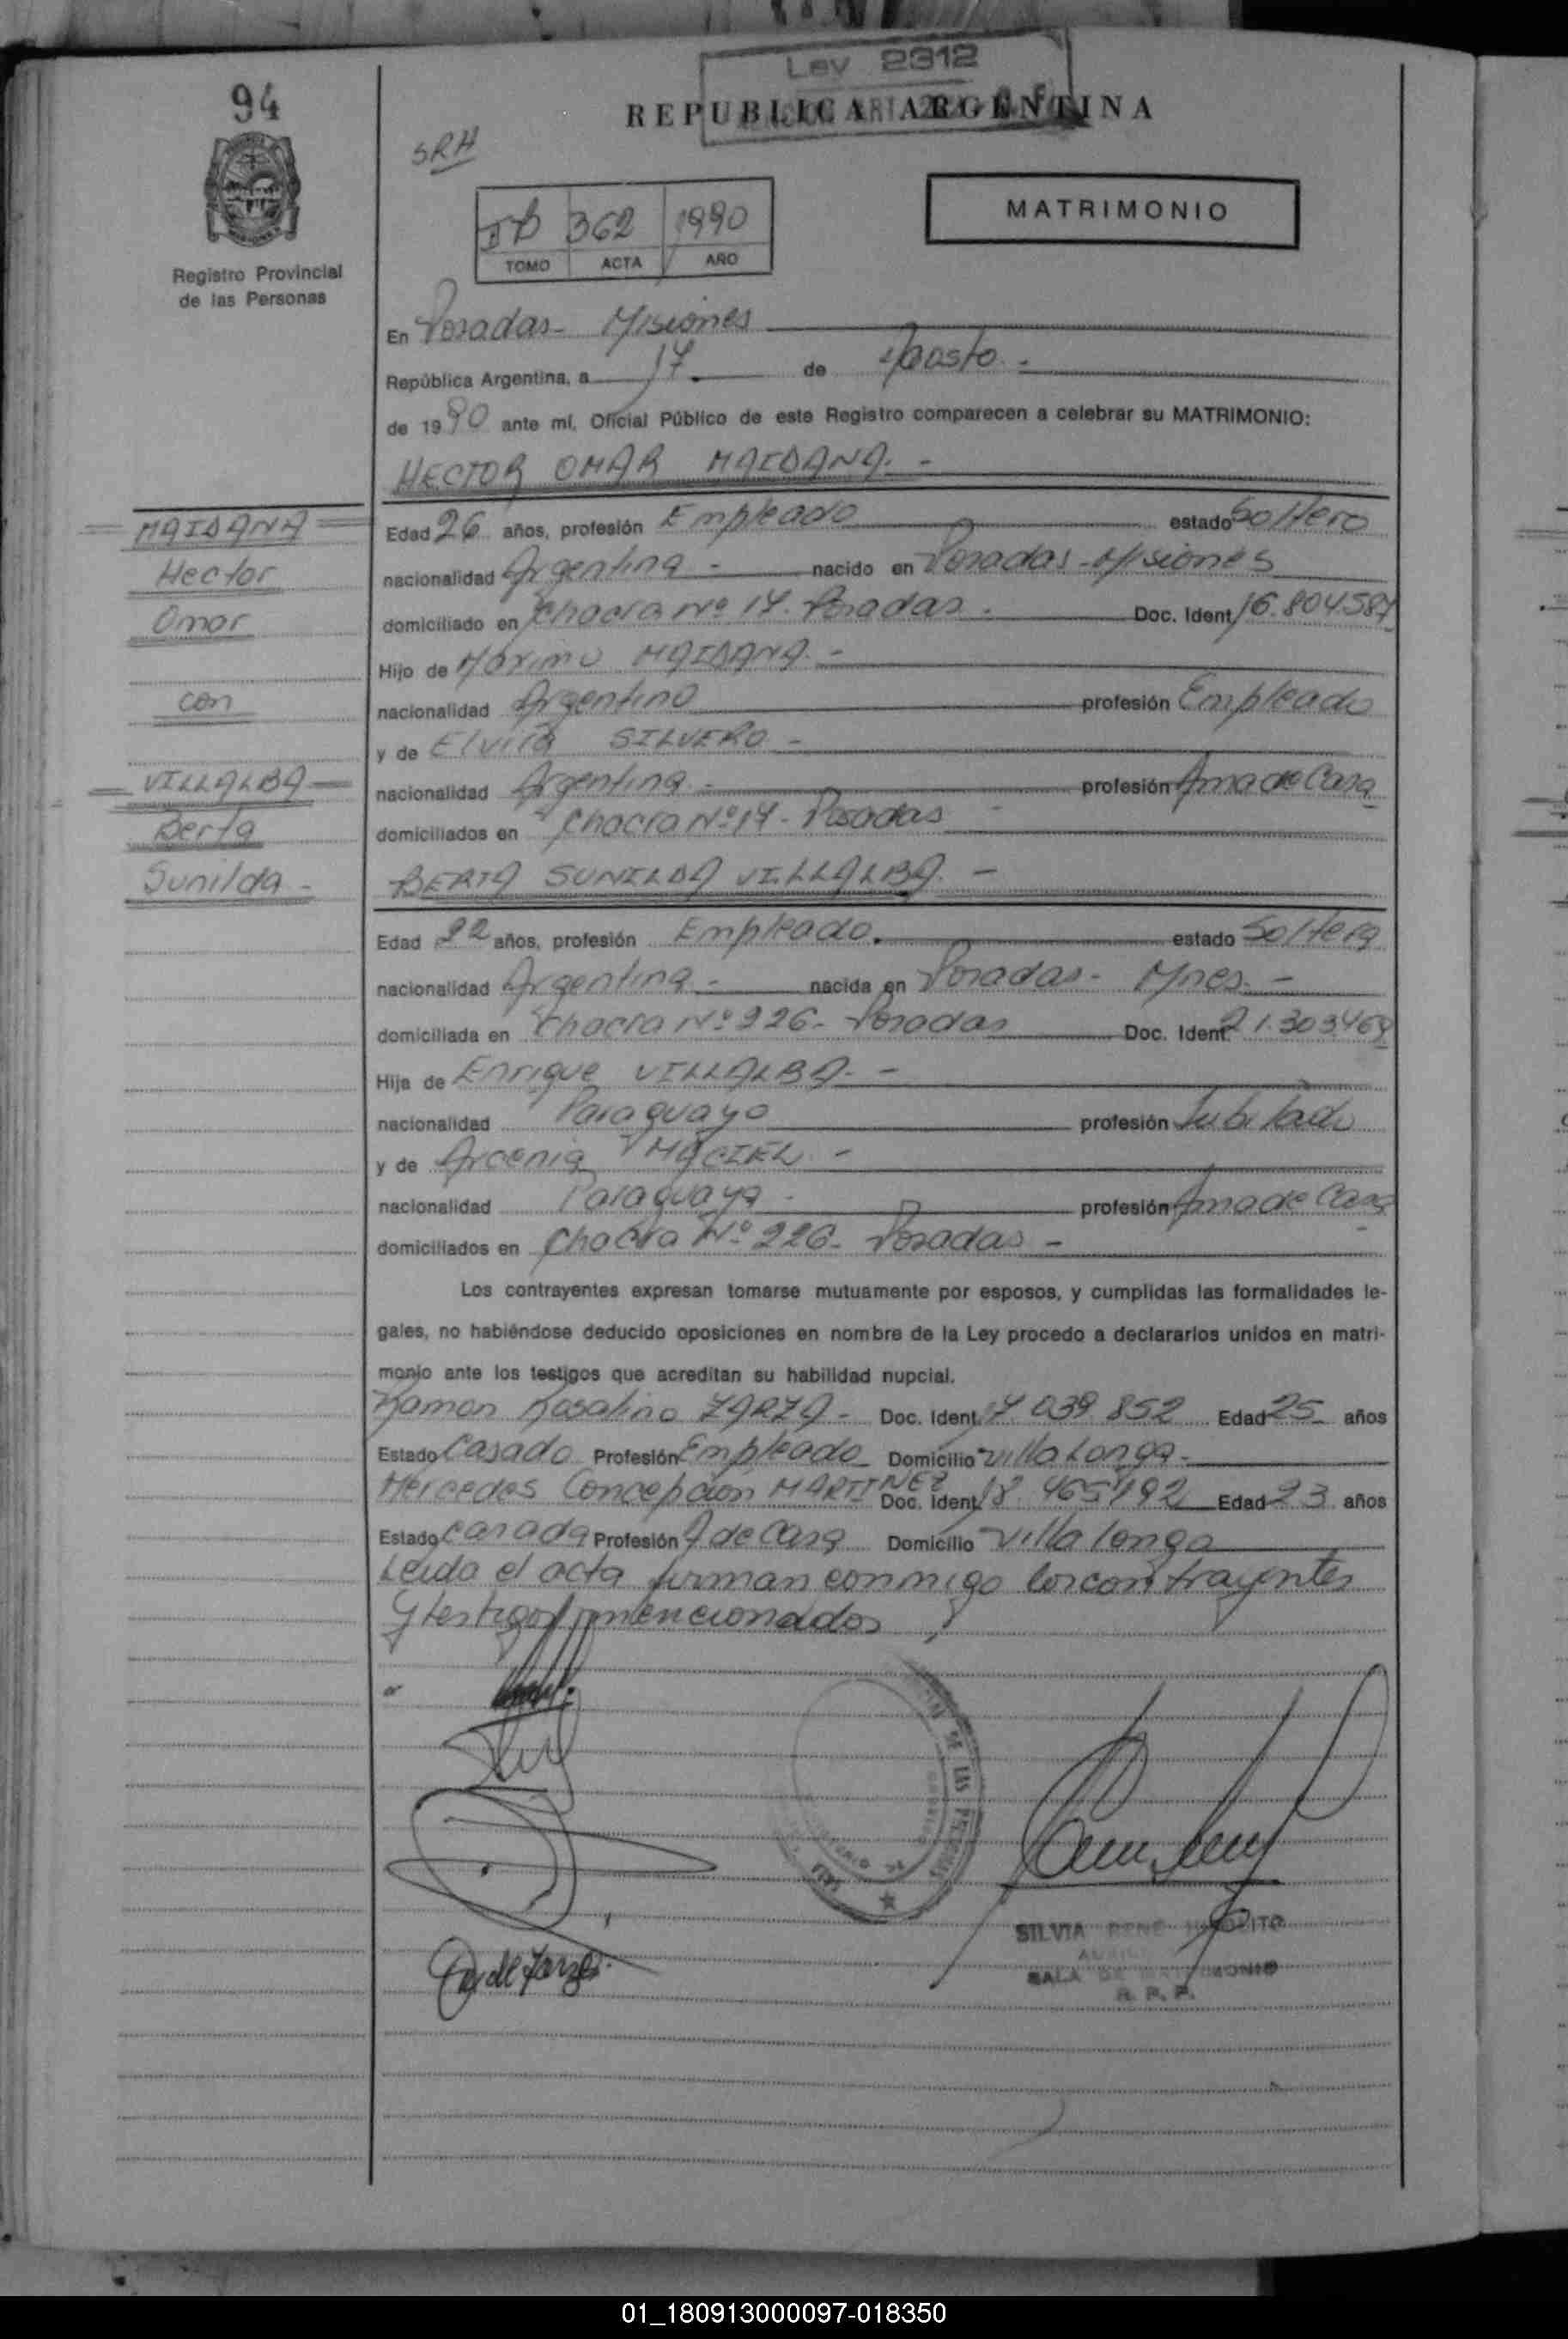 Ley 2312
94
REPUBLICA ARGENTINA
SRH
MATRIMONIO
362 1990
TOMO ACTA AÑO
Registro Provincial
de las Personas
En Posadas - Misiones
República Argentina, a 17 de Agosto.-
de 1990 ante mí, Oficial Público de este Registro comparecen a celebrar su MATRIMONIO:
HECTOR OMAR MAIDANA.-
MAIDANA
Hector
Omar
con
VILLALBA
Berta
Sunilda-
Edad 26 años, profesión Empleado estado Soltero
nacionalidad Argentina - nacido en Posadas - Misiones
domiciliado en Chacra Nº 17. Posadas. Doc. Ident. 16.804.587
Hijo de Máximo MAIDANA.-
nacionalidad Argentino profesión Empleado
y de Elvira SILVERO -
nacionalidad Argentina.- profesión Ama de Casa
domiciliados en Chacra Nº 17 - Posadas -
BERTA SUNILDA VILLALBA.-
Edad 22 años, profesión Empleado. estado Soltera
nacionalidad Argentina.- nacida en Posadas - Mnes.-
domiciliada en Chacra Nº 226 - Posadas Doc. Ident. 21.303469
Hija de Enrique VILLALBA.-
nacionalidad Paraguayo profesión Jubilado
y de Arcenia MACIEL.-
nacionalidad Paraguaya - profesión Ama de Casa
domiciliados en Chacra Nº 226 - Posadas -
Los contrayentes expresan tomarse mutuamente por esposos, y cumplidas las formalidades le-
gales, no habiéndose deducido oposiciones en nombre de la Ley procedo a declararlos unidos en matri-
monio ante los testigos que acreditan su habilidad nupcial.
Ramon Rosalino ZARZA - Doc. Ident. 17.039.852 Edad 25 años
Estado Casado Profesión Empleado Domicilio Villa Longa -
Mercedes Concepcion MARTINEZ Doc. Ident. 18.465192 Edad 23 años
Estado Casada Profesión A de Casa Domicilio Villa Longa
Leida el acta firman conmigo los contrayentes
y testigos mencionados
DE LAS PERSONAS
SILVIA RENE
SALA DE MATRIMONIO
R. P. P.
01_180913000097-018350